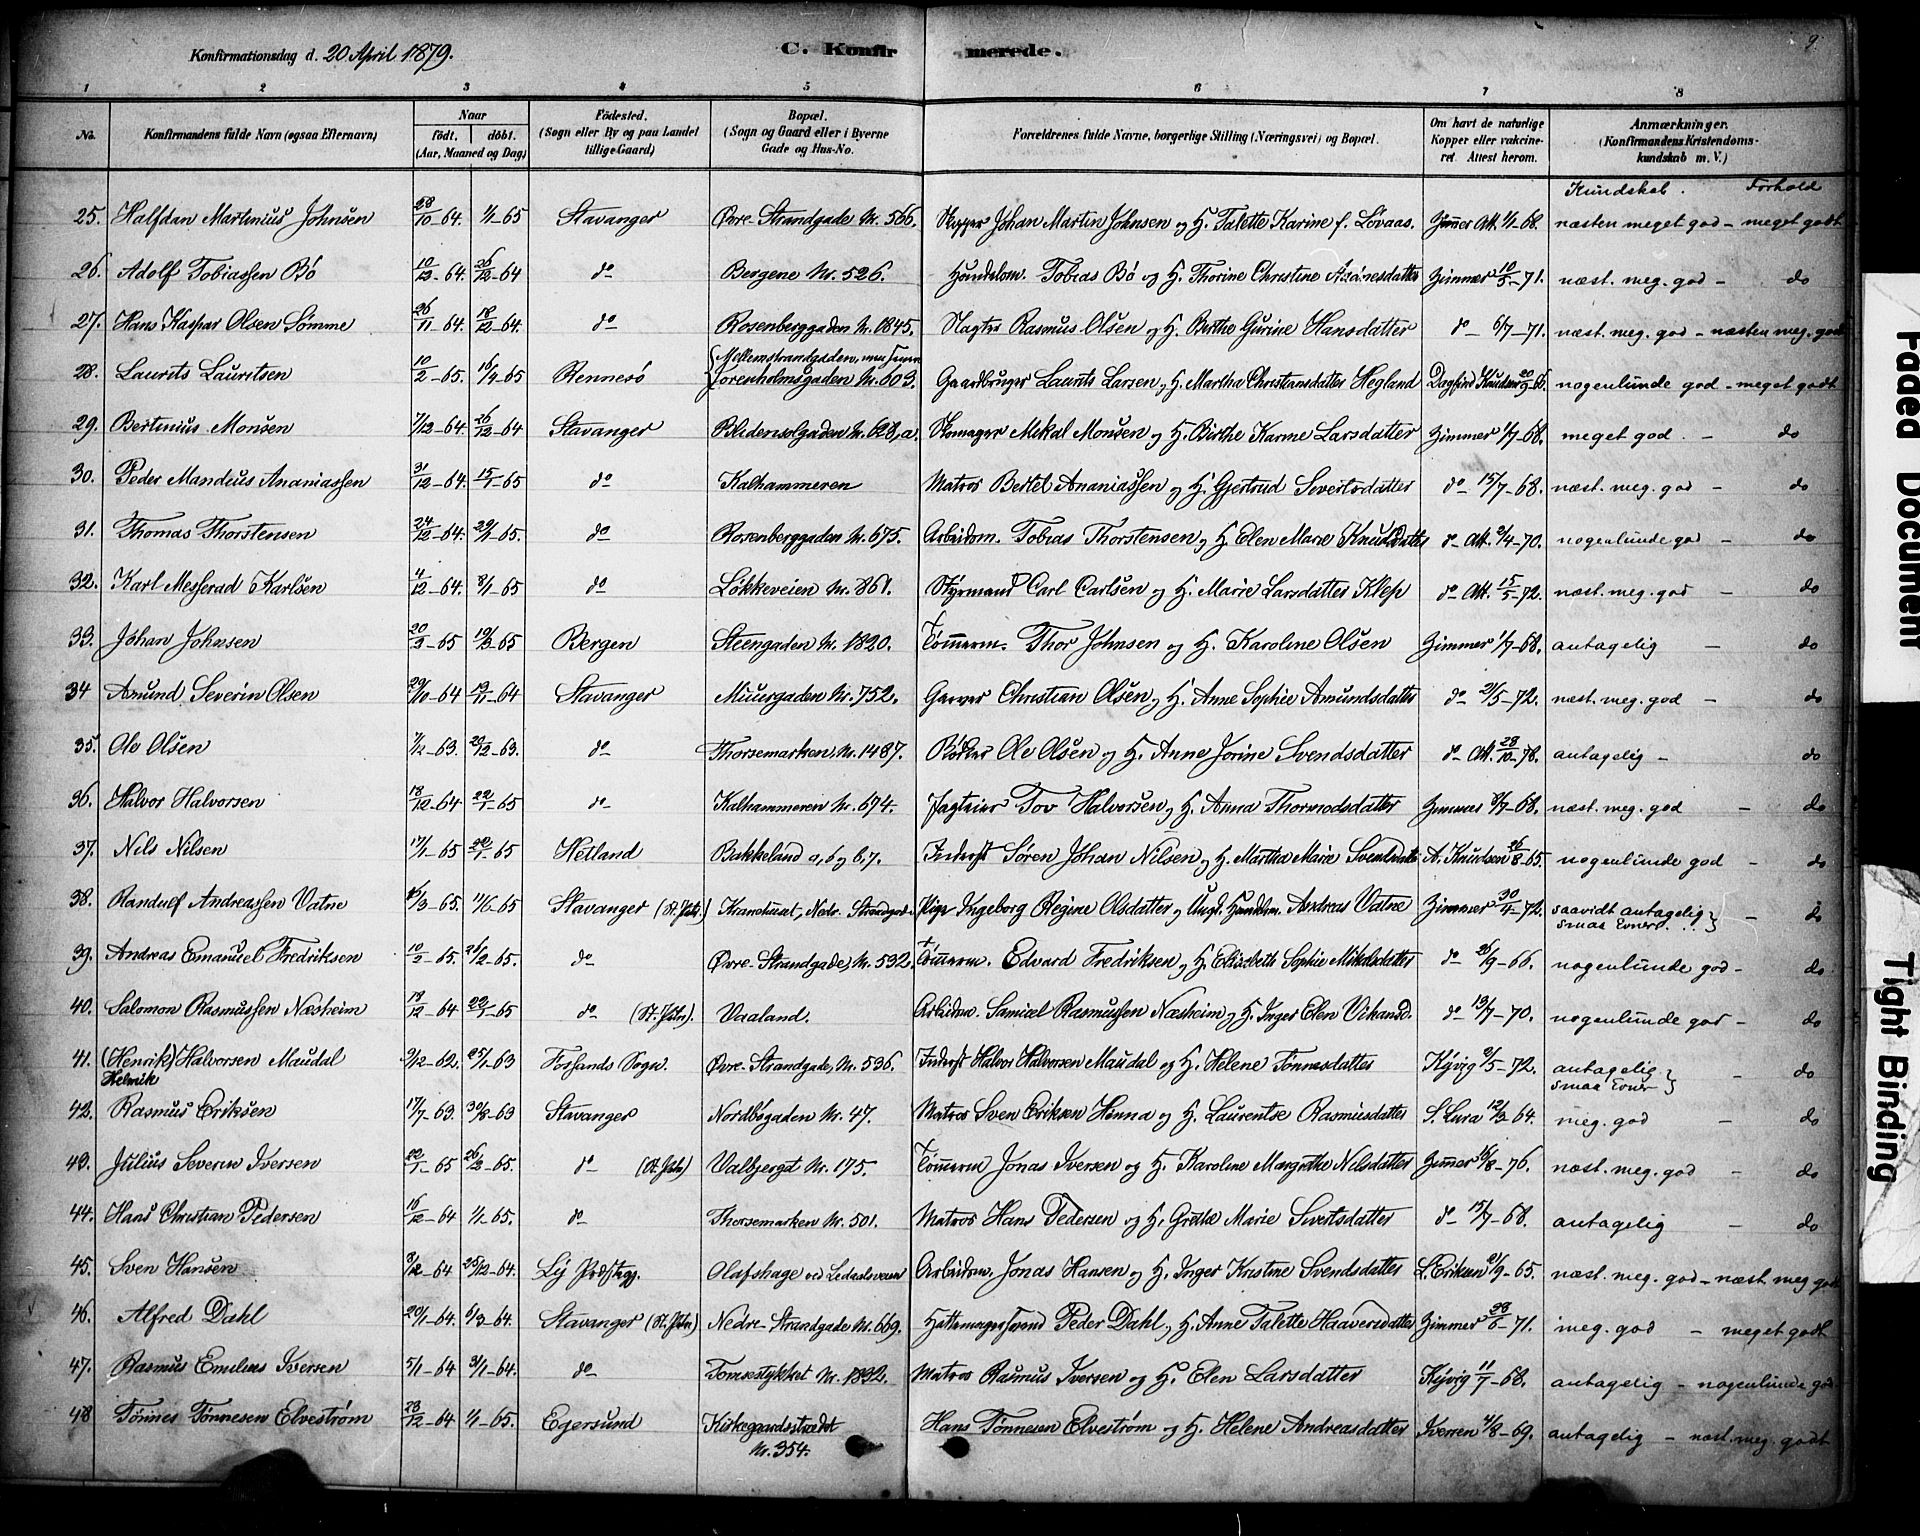 Konfirmationsdag d. 20 April 1879. C. Konfirmerede. 9
1 2 3 4 5 6 7 8
No. Konfirmandens fulde Navn (ogsaa Efternavn) Naar födt. döbt. (Aar, Maaned og Dag) Födested. (Sogn eller By og paa Landet tillige Gaard) Bopæl. (Sogn og Gaard eller i Byerne Gade og Hus-No. Forældrenes fulde Navne, borgerlige Stilling (Næringsvei) og Bopæl. Om havt de naturlige Kopper eller vakcineret. Attest herom. Anmærkninger. (Konfirmandens Kristendomskundskab m. V.)
Kundskab. Forhold
25. Halfdan Martinius Johnsen 28/10-64. 1/1-65 Stavanger Øvre Strandgade Nr. 566. Skipper Johan Martin Johnsen og H. Talette Karine f. Løvaas. Zimmer Att. 1/1-68. næsten meget god - meget godt
26. Adolf Tobiassen Bö 10/12-64. 26/12-64 do Bergene Nr. 526. Handelsm. Tobias Bö og H. Thorine Christine Asönesdatter Zimmer 10/5-71. næst. meg. god - do
27. Hans Kaspar Olsen Sømme 26/11-64. 18/12-64. do Rosenberggaden Nr. 845. Slagter Rasmus Olsen og H. Birthe Gurine Hansdatter do - 6/7-71. næst. meg. god - næsten meg. god
28. Laurits Lauritsen 10/2-65. 16/4-65 Rennesö Nr. 603. Gaardbruger Laurits Larsen og H. Martha Christiansdatter Hegland Dagfind Knudsen 20/9-66. nogenlunde god - meget godt
29. Bertinius Monsen 7/12-64. 26/12-64 Stavanger Blidensolgaden Nr. 628, a. Skomager Mikal Monsen og H. Birthe Karine Larsdatter Zimmer 1/7-68. meget god. - do
30. Peder Mandius Ananiassen 31/12-64. 15/1-65 do Kalhammeren Matros Bertel Ananiassen og H. Gjertrud Sivertsdatter do - 15/7-68. næst. meg. god - do
31. Thomas Thorstensen 24/12-64. 29/1-65. do Rosenberggaden Nr. 675. Arbeidsm. Tobias Thorstensen og H. Elen Marie Knudsdatter do Att. 2/4-70. nogenlunde god - do
32. Karl Messerad Karlsen 4/12-64. 8/1-65 do Løkkeveien Nr. 861. Styrmand Carl Carlsen og H. Marie Larsdatter Klep do Att. 15/5-72. næst. meg. god - do
33. Johan Johnsen 20/2-65 19/3-65 Bergen Steengaden Nr. 1820. Tömmerm. Thor Johnsen og H. Karoline Olsen Zimmer 1/7-68. antagelig - do
34 Amund Severin Olsen 29/10-64 13/11-64 Stavanger Muurgaden Nr. 752. Garver Christian Olsen og H. Anne Sophie Amundsdatter do - 21/5-72. næst. meg. god - do
35. Ole Olsen 7/12-63. 29/12-63. do Thorsemarken Nr. 1487. Rörlar Ole Olsen og H. Anne Jorine Svendsdatter do Att. 28/10-78. antagelig - do
36. Halvor Halvorsen 18/12-64 22/1-65 do Kalhammeren Nr. 674. Jagteier Tov Halvorsen og H. Anna Thormodsdatter Zimmer 8/7-68. næst. meg. god - do
37. Nils Nilsen 17/1-65 22/1-65 Hetland Bakkeland a, 6 og b, 7. Inderst Søren Johan Nilsen og H. Martha Marie Svendsdatter A. Knudsen 26/8-65. nogenlunde god - do
38. Randulf Andreassen Vatne 16/3-65. 11/6-65 Stavanger (St. Petri.) Kranehuset, Nedr. Strandgade Pige Ingeborg Regine Olsdatter og Ungk. Handelsm. Andreas Vatne Zimmer 30/4-72. saavidt antagelig } smaa Evner... - do
39. Andreas Emanuel Fredriksen 10/2-65. 26/2-65. do Øvre Strandgade Nr. 532. Tömmerm. Edvard Fredriksen og H. Elisabeth Sophie Mikalsdatter do 26/9-66. nogenlunde god - do
40. Salomon Rasmussen Næsheim 13/12-64 29/1-65 do (St. Petri). Vaaland. Arbeidsm. Samuel Rasmussen Næsheim og H. Inger Elen Vikansd. do 13/7-70. nogenlunde god - do
41. (Henrik) Halvorsen Maudal 9/12-62. 25/1-63 Fossands Sogn. Øvre Strandgade, Nr. 536. Inderst Halvor Halvorsen Maudal og H. Helene Tønnesdatter Kyvig 2/5-72. antagelig } smaa Evner - do
Helmik
42. Rasmus Eriksen 17/7-63. 30/8-63 Stavanger Nordbögaden Nr. 47. Matros Sven Eriksen Hinna og H. Laurentse Rasmusdatter S. Lura 12/3-64. meg. god - do
43. Julius Severin Iversen 22/1-65 26/3-65. do (St. Petri) Valbjerget Nr. 175. Tömmerm Jonas Iversen og H. Karoline Margrethe Nilsdatter Zimmer 16/8-76. næst. meg. god - do
44. Hans Christian Pedersen 16/12-64 1/1-65. do Thorsemarken Nr. 501. Matros Hans Pedersen og H. Grethe Marie Sivertsdatter do - 13/7-68. antagelig - do
45. Sven Hansen 8/12-64 25/12-64. Lij Præstegj. Olafshage ved Arbeidsm. Jonas Hansen og H. Inger Kristine Svendsdatter L. Eriksen 21/9-65. næst. meg. god - næst. meg god
46. Alfred Dahl 20/1-64. 6/3-64. Stavanger (St. Petri) Nedre Strandgade Nr. 669. Hattemagersvend Peder Dahl, H. Anne Talette Haaversdatter Zimmer 28/6-71. meg. god - meget godt
47. Rasmus Emilius Iversen 5/1-64. 31/1-64. do Tomsestykket Nr. 1392. Matros Rasmus Iversen og H. Elen Larsdatter Kyvig 11/7-68. antagelig - nogenlunde god
48 Tönnes Tönnesen Elveström 28/12-64 1/1-65. Egersund Kirkegaardsstrædet Nr. 354. Hans Tönnesen Elveström og H. Helene Andreasdatter Iversen 4/8-69. antagelig - næst. meg. godt
Faded Document
Tight Binding